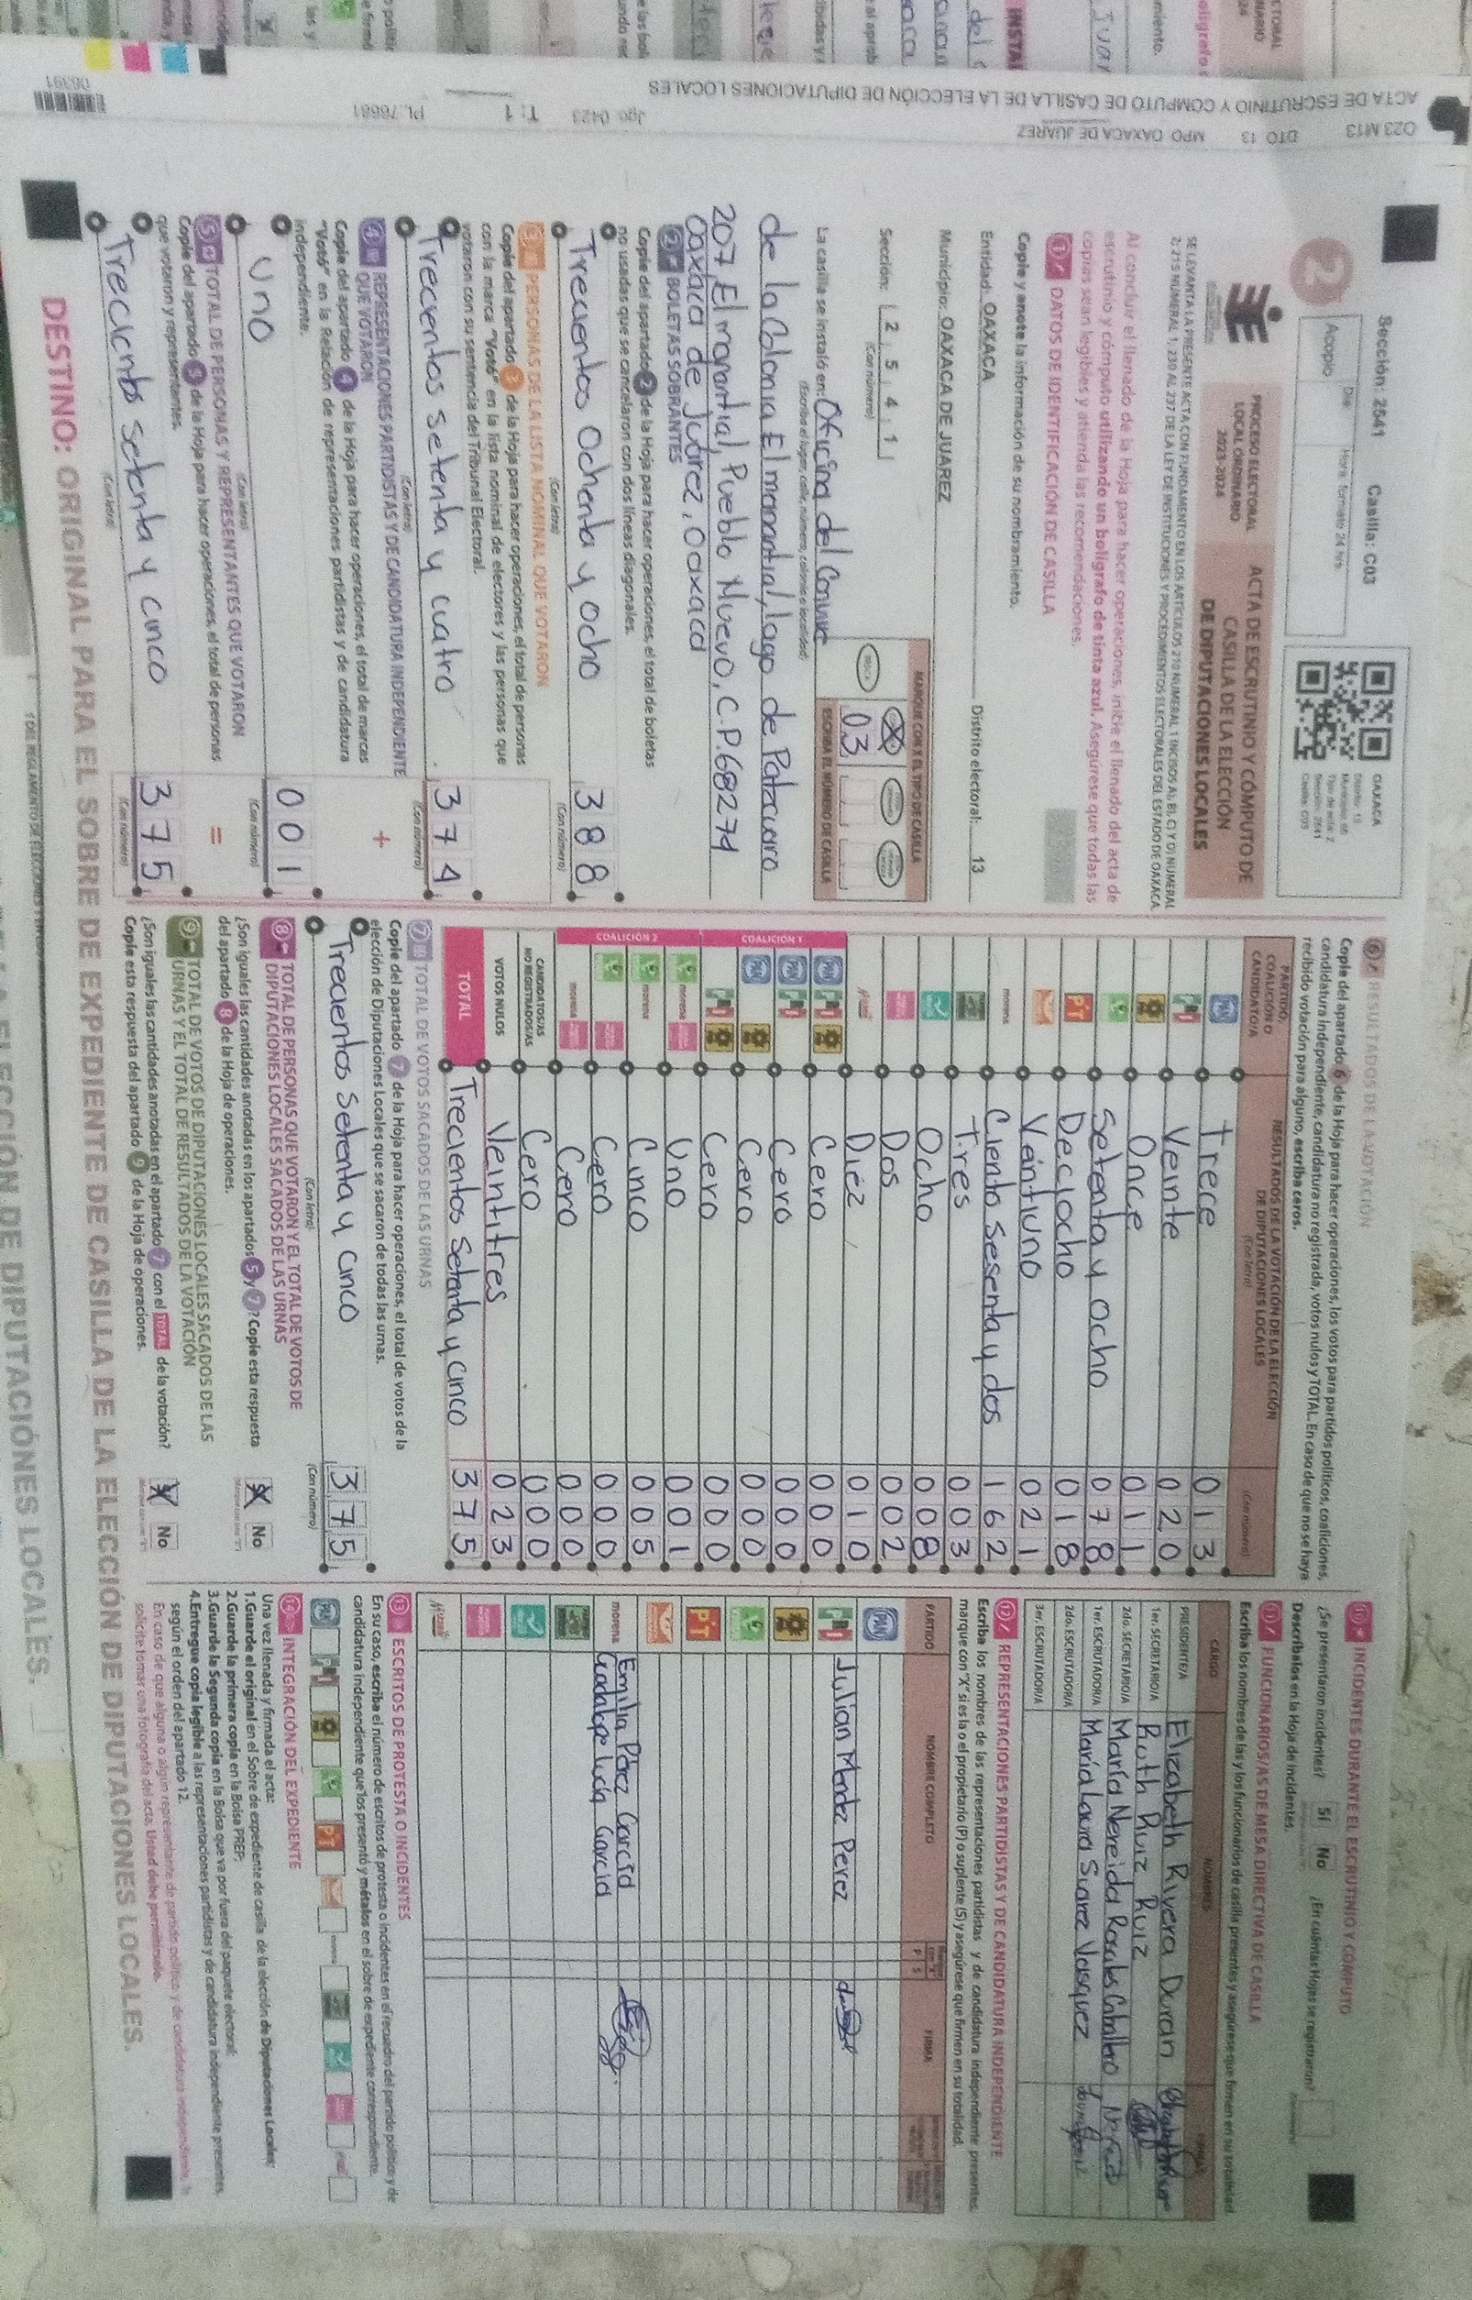 Sección: 2541 Casilla: C03
2
Día Hora: formato 24 hrs.
Acopio
OAXACA
Distrito: 13
Sección: 2541
Casilla: C03
PROCESO ELECTORAL
LOCAL ORDINARIO
2023-2024
ACTA DE ESCRUTINIO Y CÓMPUTO DE
CASILLA DE LA ELECCIÓN
DE DIPUTACIONES LOCALES
Al concluir el llenado de la Hoja para hacer operaciones, inicie el llenado del acta de
escrutinio y cómputo utilizando un bolígrafo de tinta azul. Asegúrese que todas las
copias sean legibles y atienda las recomendaciones.
1 DATOS DE IDENTIFICACIÓN DE CASILLA
Copie y anote la información de su nombramiento.
Entidad: OAXACA Distrito electoral: 13
Municipio: OAXACA DE JUAREZ
Sección: 2 5 4 1
(Con número)
MARQUE CON X EL TIPO DE CASILLA
X
ESCRIBA EL NÚMERO DE CASILLA
03
La casilla se instaló en: Oficina del Conuve
(Escriba el lugar, calle, número, colonia o localidad)
de la Colonia El manantial, lago de Patzcuaro
207, El manantial, Pueblo Nuevo, C.P. 68274
Oaxaca de Juárez, Oaxaca
2 BOLETAS SOBRANTES
Copie del apartado 2 de la Hoja para hacer operaciones, el total de boletas
no usadas que se cancelaron con dos líneas diagonales.
Trecientos Ochenta y Ocho 388
(Con letra) (Con número)
3 PERSONAS DE LA LISTA NOMINAL QUE VOTARON
Copie del apartado 3 de la Hoja para hacer operaciones, el total de personas
con la marca "Votó" en la lista nominal de electores y las personas que
votaron con su sentencia del Tribunal Electoral.
Trecientos setenta y cuatro 374
(Con letra) (Con número)
4 REPRESENTACIONES PARTIDISTAS Y DE CANDIDATURA INDEPENDIENTE
QUE VOTARON +
Copie del apartado 4 de la Hoja para hacer operaciones, el total de marcas
"Votó" en la Relación de representaciones partidistas y de candidatura
independiente.
Uno 001
(Con letra) (Con número)
5 TOTAL DE PERSONAS Y REPRESENTANTES QUE VOTARON =
Copie del apartado 5 de la Hoja para hacer operaciones, el total de personas
que votaron y representantes.
Trecientos setenta y cinco 375
(Con letra) (Con número)
6 RESULTADOS DE LA VOTACIÓN
Copie del apartado 6 de la Hoja para hacer operaciones, los votos para partidos políticos, coaliciones,
candidatura independiente, candidatura no registrada, votos nulos y TOTAL. En caso de que no se haya
recibido votación para alguno, escriba ceros.
PARTIDO,
COALICIÓN O
CANDIDATO/A
RESULTADOS DE LA VOTACIÓN DE LA ELECCIÓN
DE DIPUTACIONES LOCALES
(Con letra) (Con número)
PAN trece 013
PRI Veinte 020
Once 011
Setenta y ocho 078
PT Deciocho 018
Veintiuno 021
morena Ciento sesenta y dos 162
Tres 003
Ocho 008
Dos 002
Diez 010
COALICIÓN 1
PAN PRI Cero 000
PAN PRI Cero 000
PAN Cero 000
PRI Cero 000
COALICIÓN 2
morena Uno 001
morena Cinco 005
Cero 000
morena Cero 000
CANDIDATOS/AS
NO REGISTRADOS/AS Cero 000
VOTOS NULOS Veintitres 023
TOTAL Trecientos Setenta y cinco 375
7 TOTAL DE VOTOS SACADOS DE LAS URNAS
Copie del apartado 7 de la Hoja para hacer operaciones, el total de votos de la
elección de Diputaciones Locales que se sacaron de todas las urnas.
Trecientos Setenta y cinco 375
(Con letra) (Con número)
8 TOTAL DE PERSONAS QUE VOTARON Y EL TOTAL DE VOTOS DE
DIPUTACIONES LOCALES SACADOS DE LAS URNAS
¿Son iguales las cantidades anotadas en los apartados 5 y 7? Copie esta respuesta
del apartado 8 de la Hoja de operaciones.
X No
9 TOTAL DE VOTOS DE DIPUTACIONES LOCALES SACADOS DE LAS
URNAS Y EL TOTAL DE RESULTADOS DE LA VOTACIÓN
¿Son iguales las cantidades anotadas en el apartado 7 con el TOTAL de la votación?
Copie esta respuesta del apartado 9 de la Hoja de operaciones.
X No
10 INCIDENTES DURANTE EL ESCRUTINIO Y CÓMPUTO
¿Se presentaron incidentes? Sí No ¿En cuántas Hojas se registraron?
Descríbalos en la Hoja de incidentes.
11 FUNCIONARIOS/AS DE MESA DIRECTIVA DE CASILLA
Escriba los nombres de las y los funcionarios de casilla presentes y asegúrese que firmen en su totalidad.
CARGO NOMBRES FIRMAS
PRESIDENTE/A Elizabeth Rivera Duran
1er. SECRETARIO/A Ruth Ruiz Ruiz
2do. SECRETARIO/A María Nereida Rosales Caballero
1er. ESCRUTADOR/A María Laura Suarez Vasquez
2do. ESCRUTADOR/A
3er. ESCRUTADOR/A
12 REPRESENTACIONES PARTIDISTAS Y DE CANDIDATURA INDEPENDIENTE
Escriba los nombres de las representaciones partidistas y de candidatura independiente presentes,
marque con "X" si es la o el propietario (P) o suplente (S) y asegúrese que firmen en su totalidad.
PARTIDO NOMBRE COMPLETO P S FIRMA
PAN
PRI Julian Mendez Perez
PT
morena Emilia Pérez García
Guadalupe Lucía García
13 ESCRITOS DE PROTESTA O INCIDENTES
En su caso, escriba el número de escritos de protesta o incidentes en el recuadro del partido político y de
candidatura independiente que los presentó y métalos en el sobre de expediente correspondiente.
14 INTEGRACIÓN DEL EXPEDIENTE
Una vez llenada y firmada el acta:
1.Guarde el original en el Sobre de expediente de casilla de la elección de Diputaciones Locales;
2.Guarde la primera copia en la Bolsa PREP;
3.Guarde la Segunda copia en la Bolsa que va por fuera del paquete electoral;
4.Entregue copia legible a las representaciones partidistas y de candidatura independiente presentes,
según el orden del apartado 12.
DESTINO: ORIGINAL PARA EL SOBRE DE EXPEDIENTE DE CASILLA DE LA ELECCIÓN DE DIPUTACIONES LOCALES.
O23 M13 DTO 13 MPO OAXACA DE JUÁREZ
ACTA DE ESCRUTINIO Y CÓMPUTO DE CASILLA DE LA ELECCIÓN DE DIPUTACIONES LOCALES
Jgo 0423 T: 1 PL 76681
06391